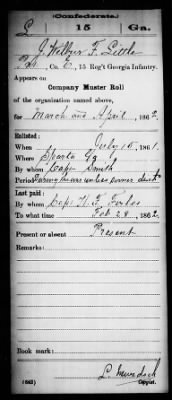 (Confederate.)
L 15 Ga.
J. Wilbur F. Little
Pvt, Co. E, 15 Reg't Georgia Infantry.
Appears on
Company Muster Roll
of the organization named above,
for March and April, 1862.
Enlisted:
When July 15, 1861.
Where Sparta Ga
By whom Capt Smith
Period During the war unless sooner
Last paid:
By whom Capt
To what time Feb 28, 1862.
Present or absent Present
Remarks:
Book mark:
(642)
L. Murdoch
Copyist.